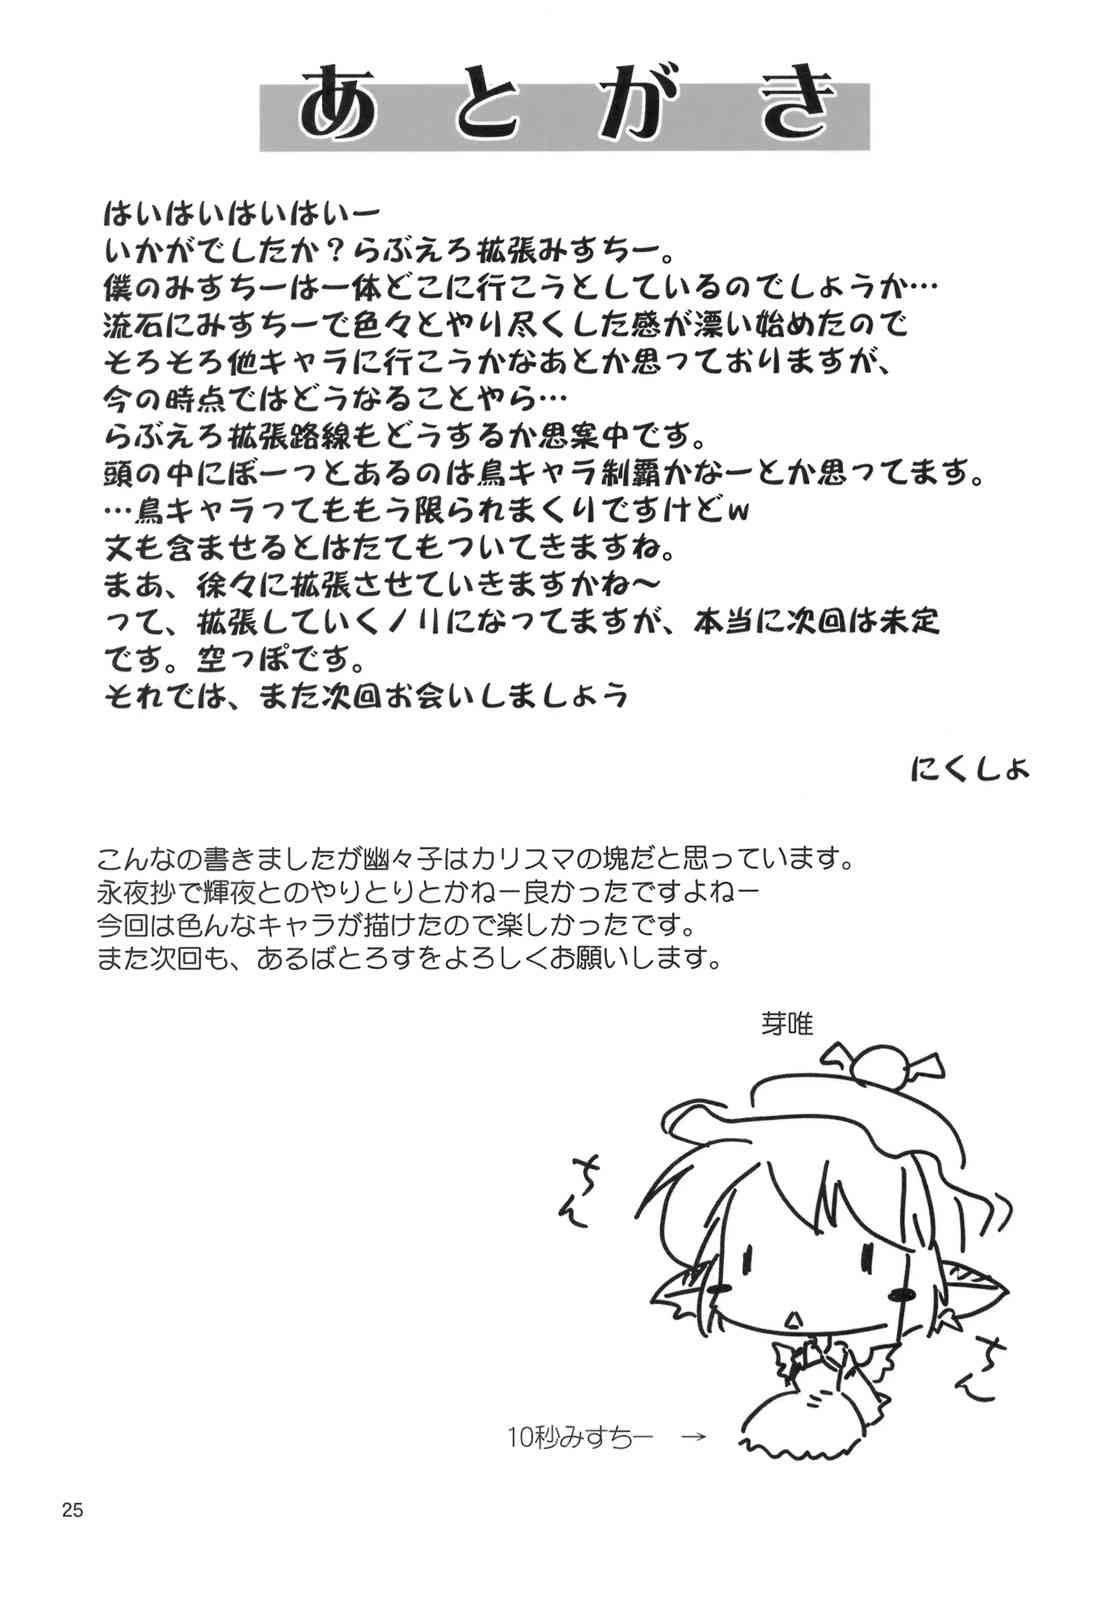 あとがき
はいはいはいはいー
いかがでしたか？らぶえろ拡張みすちー。
僕のみすちーは一体どこに行こうとしているのでしょうか…
流石にみすちーで色々とやり尽くした感が漂い始めたので
そろそろ他キャラに行こうかなあとか思っておりますが、
今の時点ではどうなることやら…
らぶえろ拡張路線もどうするか思案中です。
頭の中にぼーっとあるのは鳥キャラ制覇かなーとか思ってます。
…鳥キャラってももう限られまくりですけどw
文も含ませるとはたてもついてきますね。
まあ、徐々に拡張させていきますかね～
って、拡張していくノリになってますが、本当に次回は未定
です。空っぽです。
それでは、また次回お会いしましょう
にくしょ
こんなの書きましたが幽々子はカリスマの塊だと思っています。
永夜抄で輝夜とのやりとりとかねー良かったですよねー
今回は色んなキャラが描けたので楽しかったです。
また次回も、あるばとろすをよろしくお願いします。
芽唯
ちん
ちん
10秒みすちー　→
25